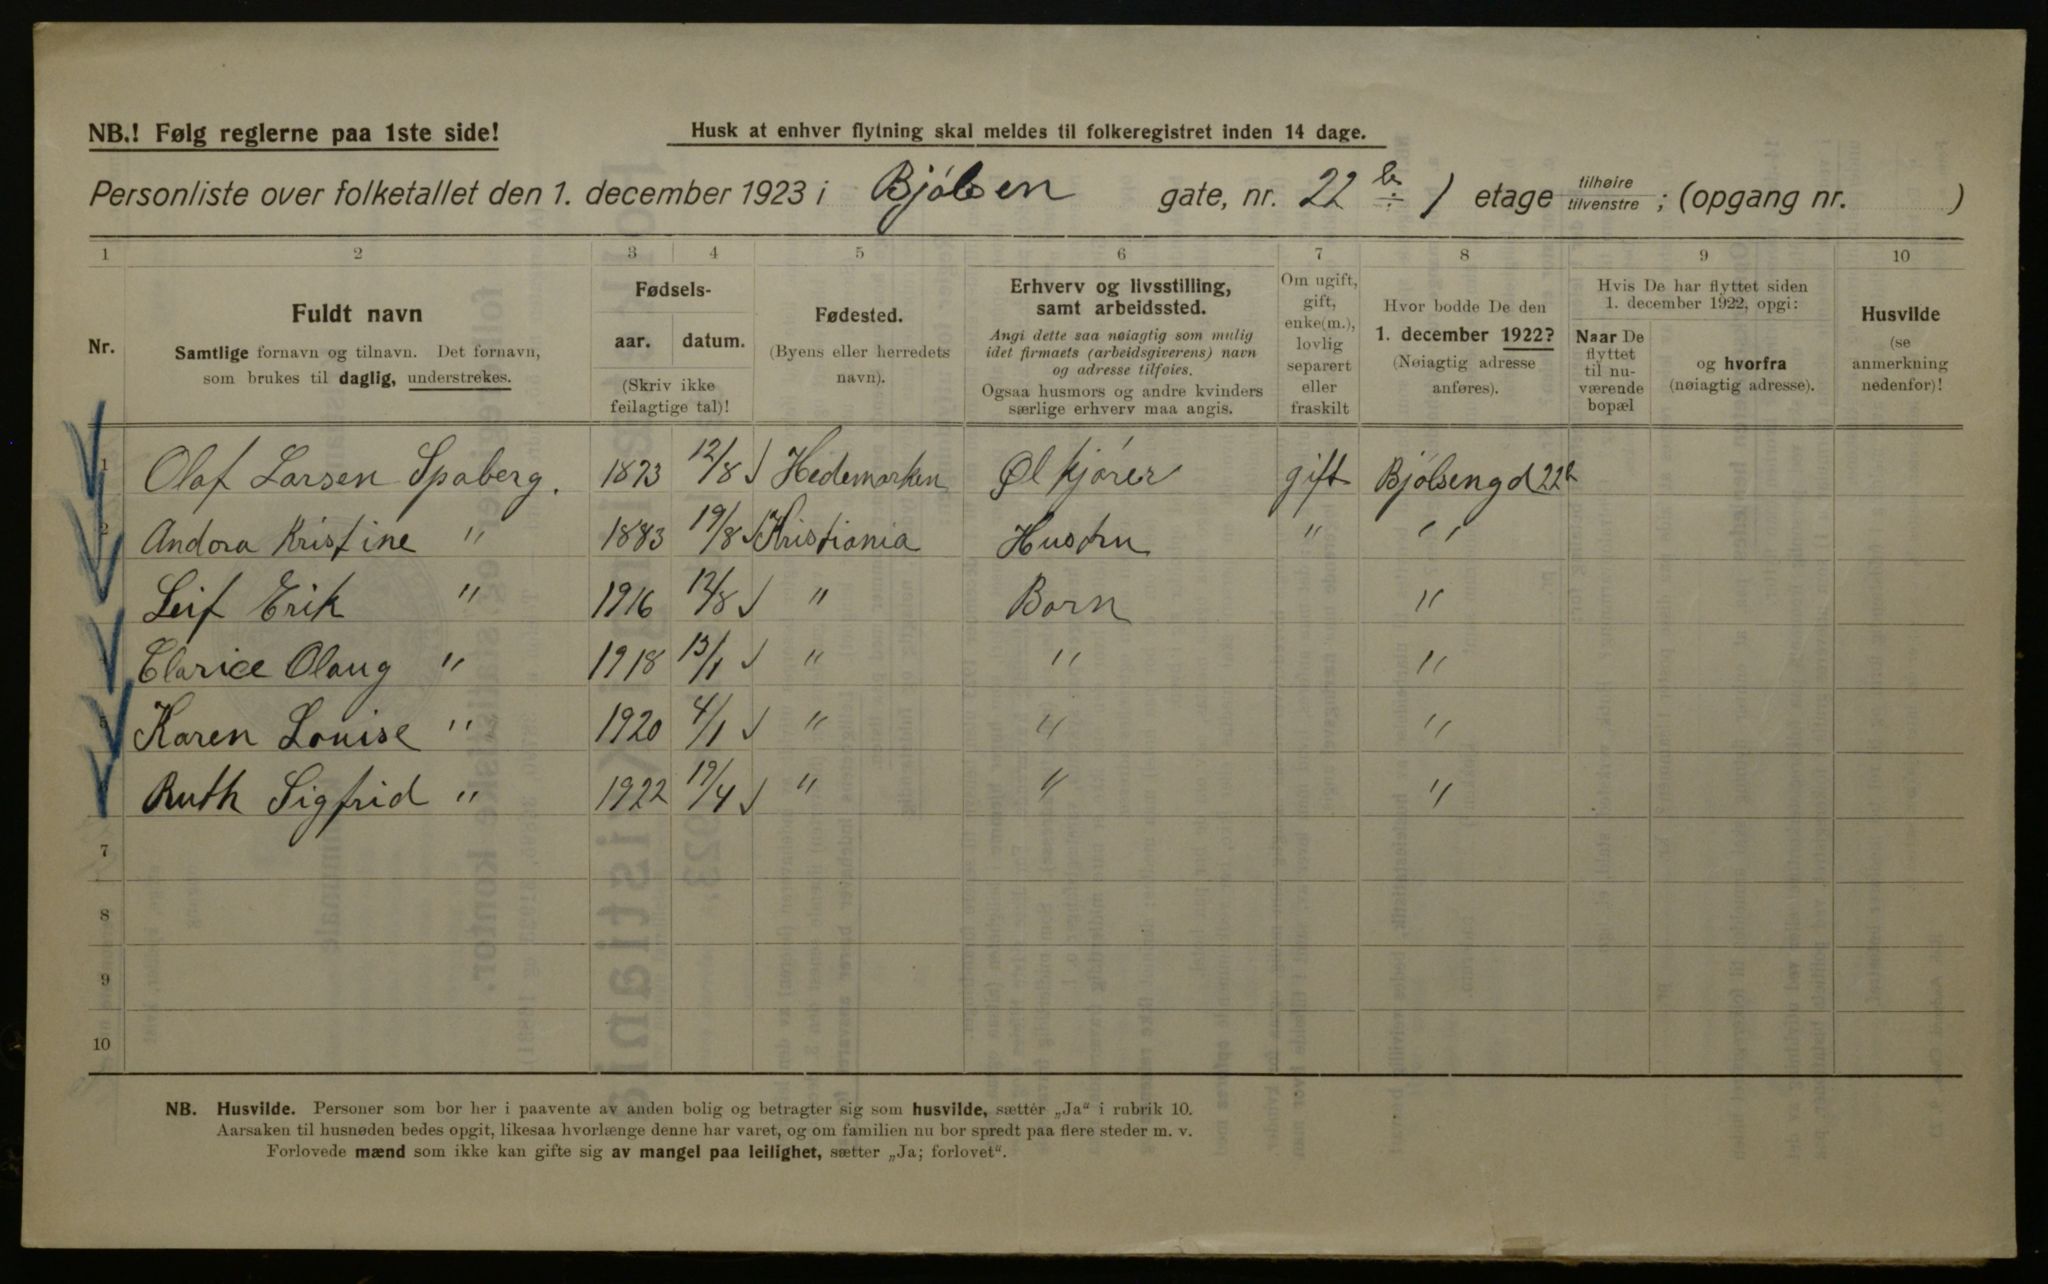 NB.! Følg reglerne paa 1ste side!
Husk at enhver flytning skal meldes til folkeregistret inden 14 dage.
Personliste over folketallet den 1. december 1923 i Bjølsen gate, nr. 22 b 1 etage tilhøire tilvenstre ; (opgang nr. )
1 2 3 4 5 6 7 8 9 10
Nr.
Fuldt navn
Samtlige fornavn og tilnavn. Det fornavn,
som brukes til daglig, understrekes.
Fødsels-
aar. datum.
(Skriv ikke
feilagtige tal)!
Fødested.
(Byens eller herredets
navn).
Erhverv og livsstilling,
samt arbeidssted.
Angi dette saa nøiagtig som mulig
idet firmaets (arbeidsgiverens) navn
og adresse tilføies.
Ogsaa husmors og andre kvinders
særlige erhverv maa angis.
Om ugift,
gift,
enke(m.),
lovlig
separert
eller
fraskilt
Hvor bodde De den
1. december 1922?
(Nøiagtig adresse
anføres).
Hvis De har flyttet siden
1. december 1922, opgi:
Naar De
flyttet
til nu-
værende
bopæl
og hvorfra
(nøiagtig adresse).
Husvilde
(se
anmerkning
nedenfor)!
1 Olaf Larsen Spaberg. 1873 12/8 Hedemarken Øl kjører gift Bjølsengd 22b
2 Andora Kristine " 1883 19/8 Kristiania Hustru " "
Leif Erik " 1916 12/8 " Barn "
Clarice Olaug " 1918 13/1 " " "
Karen Louise " 1920 4/1 " " "
Ruth Sigfrid " 1922 19/4 " " "
7
8
9
10
NB. Husvilde. Personer som bor her i paavente av anden bolig og betragter sig som husvilde, sætter „Ja“ i rubrik 10.
Aarsaken til husnøden bedes opgit, likesaa hvorlænge denne har varet, og om familien nu bor spredt paa flere steder m. v.
Forlovede mænd som ikke kan gifte sig av mangel paa leilighet, sætter „Ja; forlovet“.